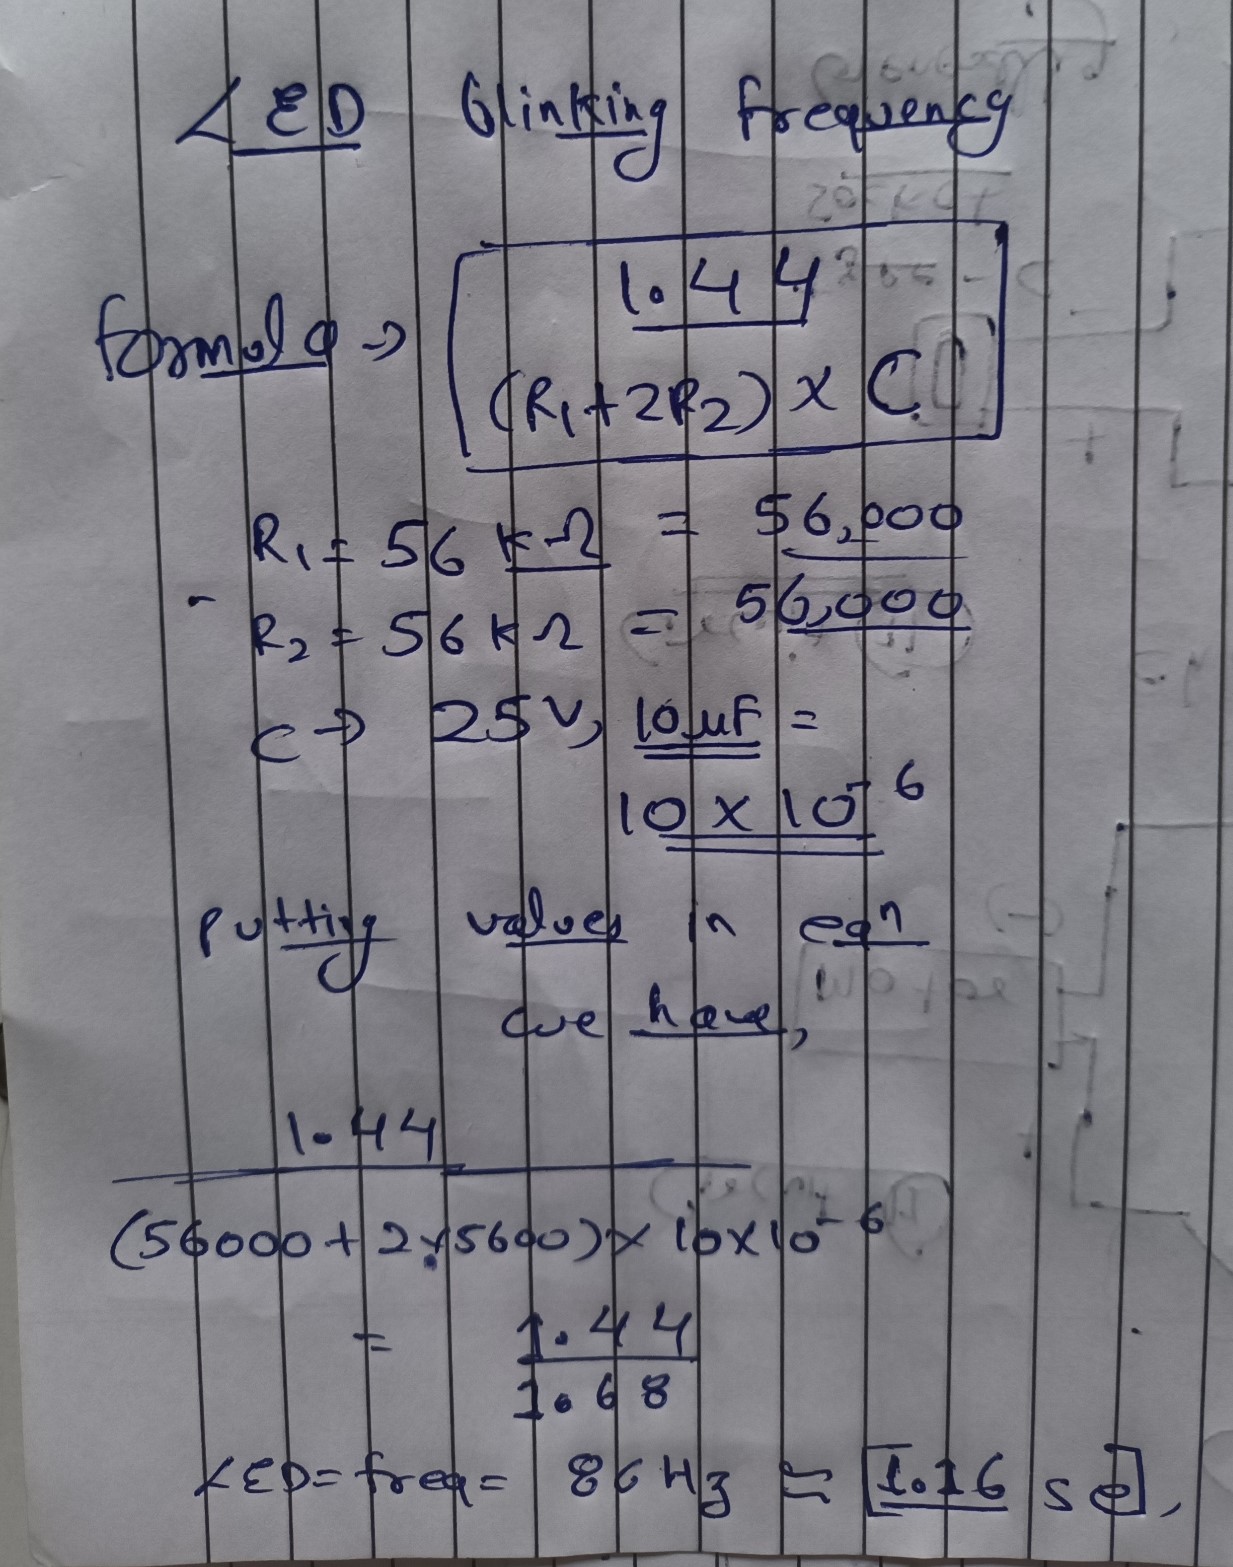 LED Blinking frequency
formula → 1.44
(R₁+2R₂) × C
R₁ = 56 kΩ = 56,000
- R₂ = 56 kΩ = 56,000
C → 25V, 10 μF =
10 × 10⁻⁶
Putting values in eqⁿ
we have,
1.44
(56000 + 2×5600) × 10×10⁻⁶
= 1.44
1.68
LED = freq = 86 Hz ≈ [1.16 se],